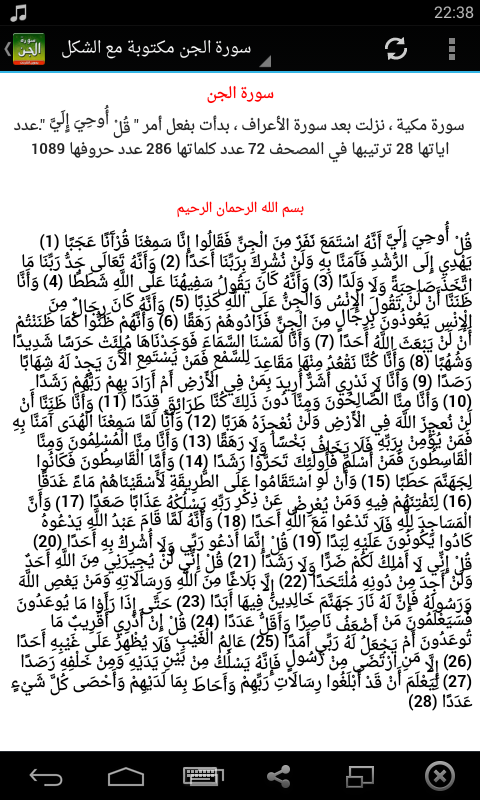 22:38
سورة الجن مكتوبة مع الشكل
سورة الجن
سورة مكية ، نزلت بعد سورة الأعراف ، بدأت بفعل أمر " قُلْ أُوحِيَ إِلَيَّ ".عدد
اياتها 28 ترتيبها في المصحف 72 عدد كلماتها 286 عدد حروفها 1089
بسم الله الرحمان الرحيم
قُلْ أُوحِيَ إِلَيَّ أَنَّهُ اسْتَمَعَ نَفَرٌ مِنَ الْجِنِّ فَقَالُوا إِنَّا سَمِعْنَا قُرْآنًا عَجَبًا (1)
يَهْدِي إِلَى الرُّشْدِ فَآَمَنَّا بِهِ وَلَنْ نُشْرِكَ بِرَبِّنَا أَحَدًا (2) وَأَنَّهُ تَعَالَى جَدُّ رَبِّنَا مَا
اتَّخَذَ صَاحِبَةً وَلَا وَلَدًا (3) وَأَنَّهُ كَانَ يَقُولُ سَفِيهُنَا عَلَى اللَّهِ شَطَطًا (4) وَأَنَّا
ظَنَنَّا أَنْ لَنْ تَقُولَ الْإِنْسُ وَالْجِنُّ عَلَى اللَّهِ كَذِبًا (5) وَأَنَّهُ كَانَ رِجَالٌ مِنَ
الْإِنْسِ يَعُوذُونَ بِرِجَالٍ مِنَ الْجِنِّ فَزَادُوهُمْ رَهَقًا (6) وَأَنَّهُمْ ظَنُّوا كَمَا ظَنَنْتُمْ
أَنْ لَنْ يَبْعَثَ اللَّهُ أَحَدًا (7) وَأَنَّا لَمَسْنَا السَّمَاءَ فَوَجَدْنَاهَا مُلِئَتْ حَرَسًا شَدِيدًا
وَشُهُبًا (8) وَأَنَّا كُنَّا نَقْعُدُ مِنْهَا مَقَاعِدَ لِلسَّمْعِ فَمَنْ يَسْتَمِعِ الْآَنَ يَجِدْ لَهُ شِهَابًا
رَصَدًا (9) وَأَنَّا لَا نَدْرِي أَشَرٌّ أُرِيدَ بِمَنْ فِي الْأَرْضِ أَمْ أَرَادَ بِهِمْ رَبُّهُمْ رَشَدًا
(10) وَأَنَّا مِنَّا الصَّالِحُونَ وَمِنَّا دُونَ ذَلِكَ كُنَّا طَرَائِقَ قِدَدًا (11) وَأَنَّا ظَنَنَّا أَنْ
لَنْ نُعجِزَ اللَّهَ فِي الْأَرْضِ وَلَنْ نُعْجِزَهُ هَرَبًا (12) وَأَنَّا لَمَّا سَمِعْنَا الْهُدَى آَمَنَّا بِهِ
فَمَنْ يُؤْمِنْ بِرَبِّهِ فَلَا يَخَافُ بَخْسًا وَلَا رَهَقًا (13) وَأَنَّا مِنَّا الْمُسْلِمُونَ وَمِنَّا
الْقَاسِطُونَ فَمَنْ أَسْلَمَ فَأُولَئِكَ تَحَرَّوْا رَشَدًا (14) وَأَمَّا الْقَاسِطُونَ فَكَانُوا
لِجَهَنَّمَ حَطَبًا (15) وَأَنْ لَوِ اسْتَقَامُوا عَلَى الطَّرِيقَةِ لَأَسْقَيْنَاهُمْ مَاءً غَدَقًا
(16) لِنَفْتِنَهُمْ فِيهِ وَمَنْ يُعْرِضْ عَنْ ذِكْرِ رَبِّهِ يَسْلُكْهُ عَذَابًا صَعَدًا (17) وَأَنَّ
الْمَسَاجِدَ لِلَّهِ فَلَا تَدْعُوا مَعَ اللَّهِ أَحَدًا (18) وَأَنَّهُ لَمَّا قَامَ عَبْدُ اللَّهِ يَدْعُوهُ
كَادُوا يَكُونُونَ عَلَيْهِ لِبَدًا (19) قُلْ إِنَّمَا أَدْعُو رَبِّي وَلَا أُشْرِكُ بِهِ أَحَدًا (20)
قُلْ إِنِّي لَا أَمْلِكُ لَكُمْ ضَرًّا وَلَا رَشَدًا (21) قُلْ إِنِّي لَنْ يُجِيرَنِي مِنَ اللَّهِ أَحَدٌ
وَلَنْ أَجِدَ مِنْ دُونِهِ مُلْتَحَدًا (22) إِلَّا بَلَاغًا مِنَ اللَّهِ وَرِسَالَاتِهِ وَمَنْ يَعْصِ اللَّهَ
وَرَسُولَهُ فَإِنَّ لَهُ نَارَ جَهَنَّمَ خَالِدِينَ فِيهَا أَبَدًا (23) حَتَّى إِذَا رَأَوْا مَا يُوعَدُونَ
فَسَيَعْلَمُونَ مَنْ أَضْعَفُ نَاصِرًا وَأَقَلُّ عَدَدًا (24) قُلْ إِنْ أَدْرِي أَقَرِيبٌ مَا
تُوعَدُونَ أَمْ يَجْعَلُ لَهُ رَبِّي أَمَدًا (25) عَالِمُ الْغَيْبِ فَلَا يُظْهِرُ عَلَى غَيْبِهِ أَحَدًا
(26) إِلَّا مَنِ ارْتَضَى مِنْ رَسُولٍ فَإِنَّهُ يَسْلُكُ مِنْ بَيْنِ يَدَيْهِ وَمِنْ خَلْفِهِ رَصَدًا
(27) لِيَعْلَمَ أَنْ قَدْ أَبْلَغُوا رِسَالَاتِ رَبِّهِمْ وَأَحَاطَ بِمَا لَدَيْهِمْ وَأَحْصَى كُلَّ شَيْءٍ
عَدَدًا (28)